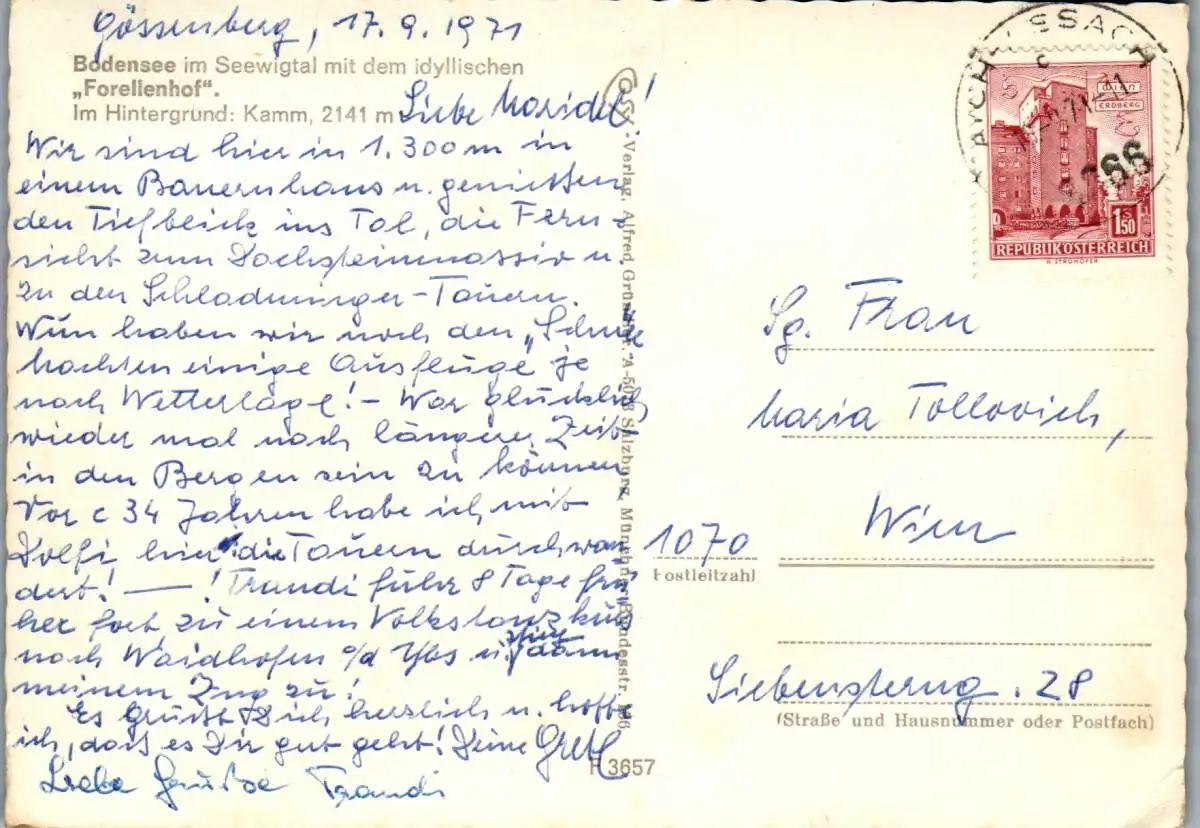 Gössenberg, 17.9.1971
Bodensee im Seewigtal mit dem idyllischen
„Forellenhof".
Im Hintergrund: Kamm, 2141 m
Liebe Maridl!
Wir sind hier in 1.300 m in
einem Bauernhaus u. geniessen
den Tiefblick ins Tal, die Fern-
sicht zum Dachsteinmassiv u.
zu den Schladminger-Tauern.
Nun haben wir noch den
machten einige Ausflüge je
nach Wetterlage! – War glücklich
wieder mal nach längerer Zeit
in den Bergen sein zu können
Vor c 34 Jahren habe ich mit
Dolfi hier die Tauern durchwan
dert! — ! Traudi fuhr 8 Tage frü
her fort zu einem Volkstanzkurs
nach Waidhofen a/d Ybbs u. dann
meinem Zug zu!
Es grüsst Dich herzlich u. hoffe
ich, dass es Dir gut geht! Deine Gretl
Liebe Grüße Traudi
-Verlag, Alfred Gründler, A-5033 Salzburg, Münchner Bundesstr. 136
F 3657
AICH-ASSACH
C
WIEN
ERDBERG
S
1.50
REPUBLIK ÖSTERREICH
H. STROHOFER
Sg. Frau
Maria Tollovich,
Wien
1070
Postleitzahl
Siebensterng. 28
(Straße und Hausnummer oder Postfach)